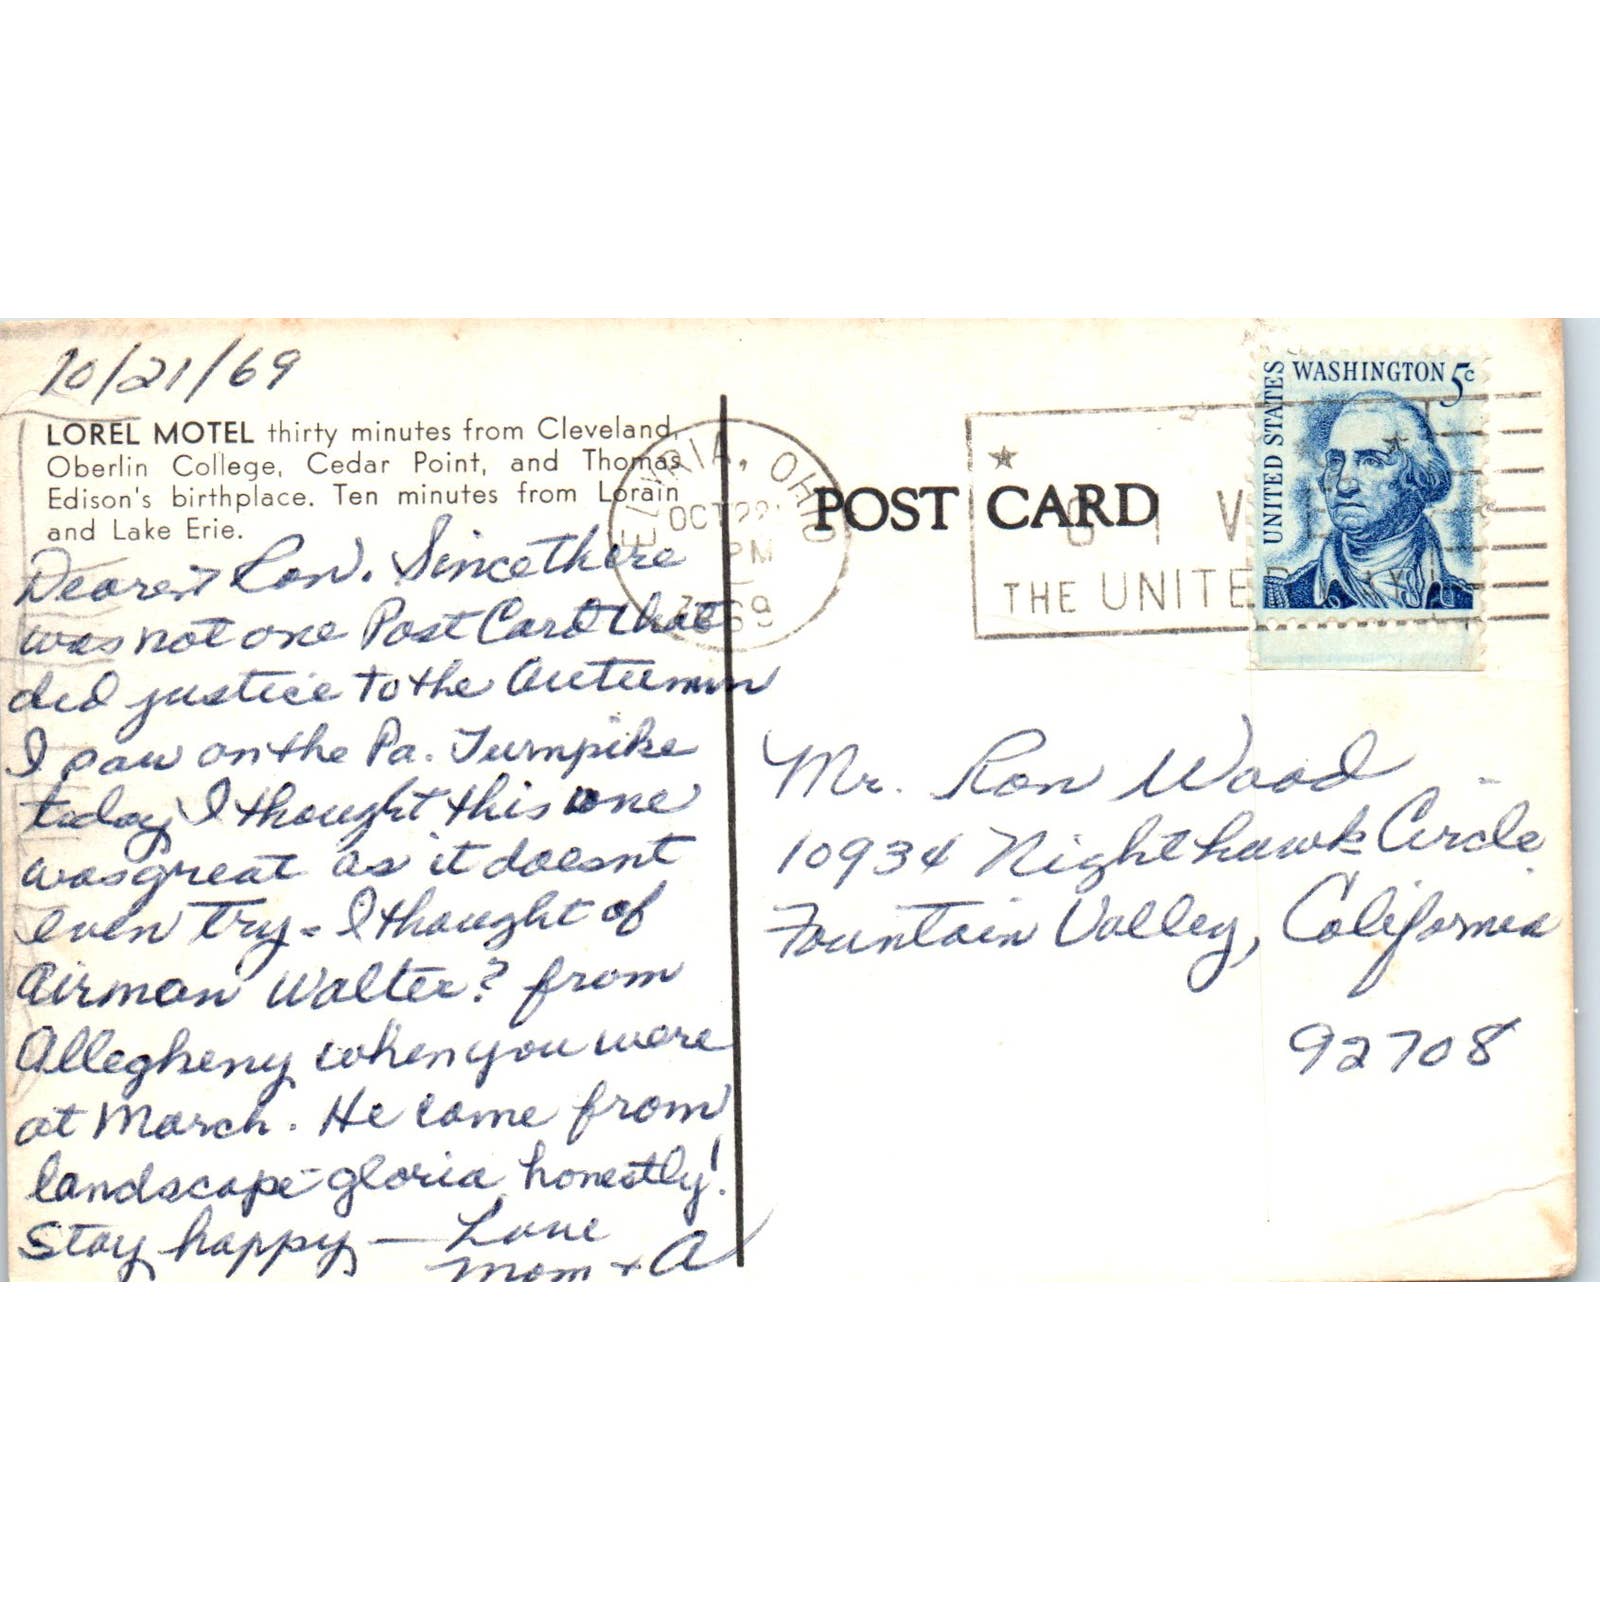 10/21/69
LOREL MOTEL thirty minutes from Cleveland,
Oberlin College, Cedar Point, and Thomas
Edison's birthplace. Ten minutes from Lorain
and Lake Erie.
Dearest Ron. Since there
was not one Post Card that
did justice to the Autumn
I saw on the Pa. Turnpike
today, I thought this one
was great as it doesn't
even try - I thought of
Airman Walter? from
Allegheny when you were
at March. He came from
landscape-gloria honestly!
Stay happy — Love
Mom + A
ELYRIA, OHIO
OCT 22
PM
1969
POST CARD
GIVE
THE UNITED WAY
UNITED STATES
WASHINGTON 5c
Mr. Ron Wood
10934 Nighthawk Circle
Fountain Valley, California
92708